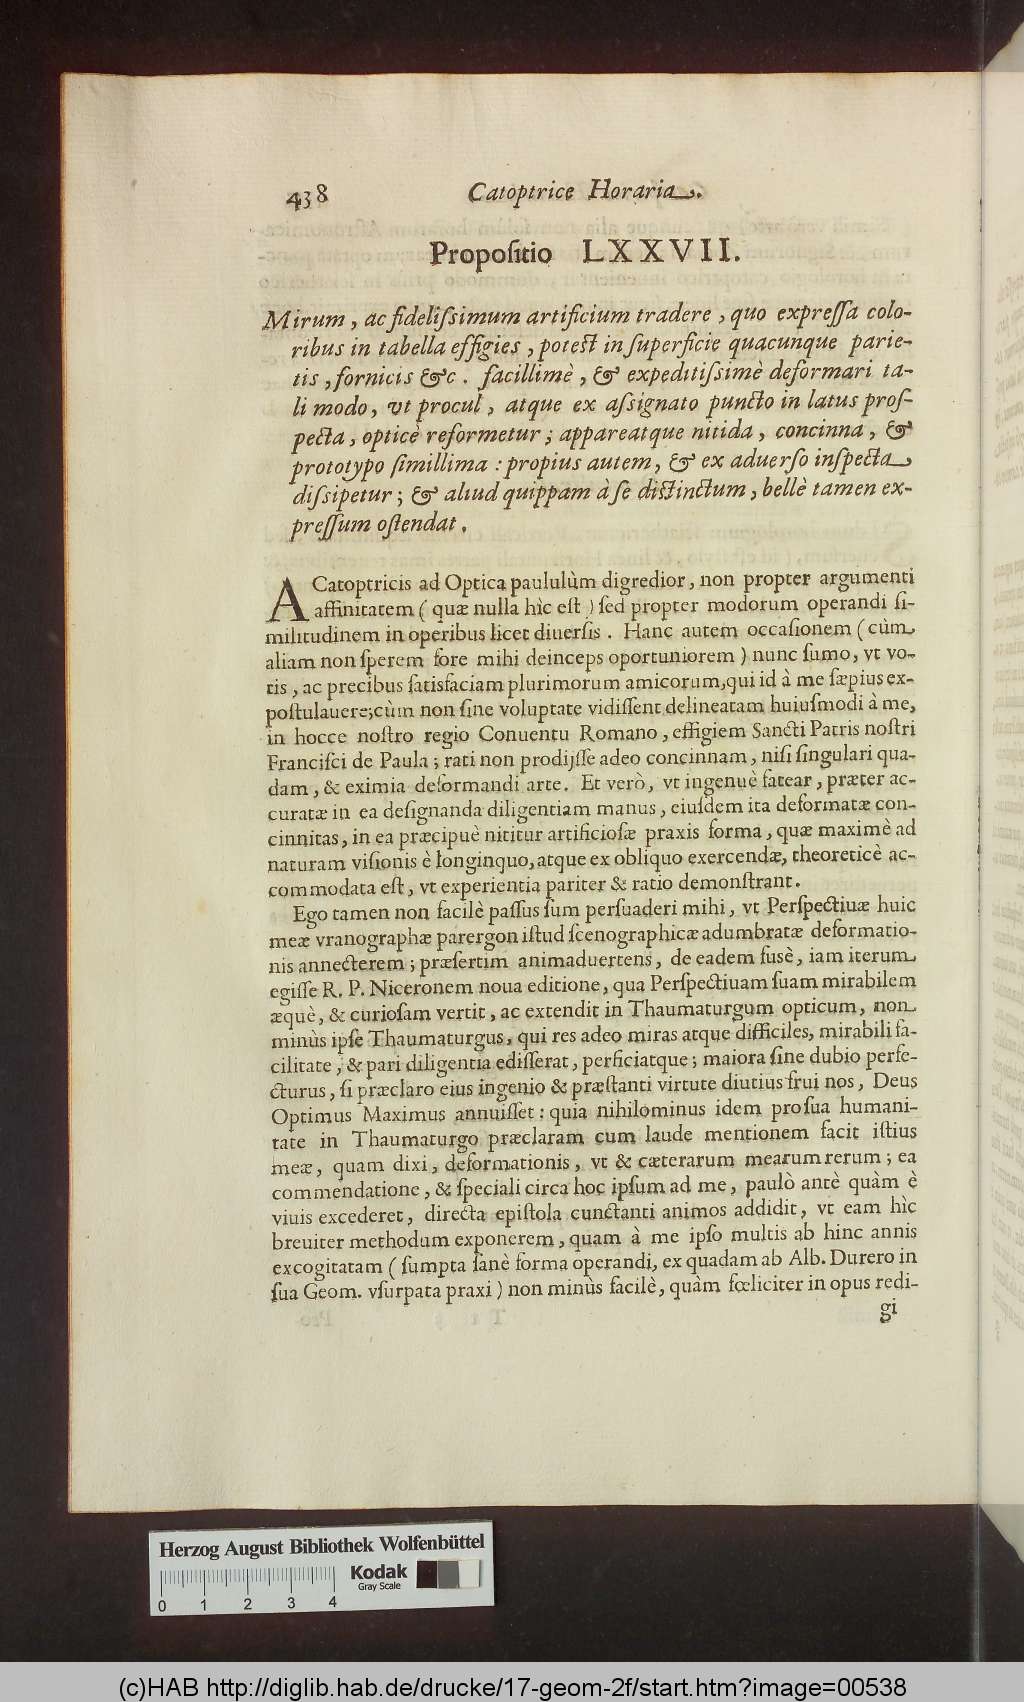 438 Catoptrice Horaria.
Propositio LXXVII.
Mirum, ac fidelißimum artificium tradere, quo expreſſa colo-
ribus in tabella effigies, poteſt in ſuperficie quacunque parie-
tis, fornicis &c. facillimè, & expeditißimè deformari ta-
li modo, vt procul, atque ex aſsignato puncto in latus proſ-
pecta, opticè reformetur; appareatque nitida, concinna, &
prototypo ſimillima: propius autem, & ex aduerſo inſpecta
diſsipetur; & aliud quippam à ſe diſtinctum, bellè tamen ex-
preſſum oſtendat.
A Catoptricis ad Optica paululùm digredior, non propter argumenti
affinitatem (quæ nulla hìc eſt) ſed propter modorum operandi ſi-
militudinem in operibus licet diuerſis. Hanc autem occaſionem (cùm
aliam non ſperem fore mihi deinceps oportuniorem) nunc ſumo, vt vo-
tis, ac precibus ſatisfaciam plurimorum amicorum, qui id à me ſæpius ex-
poſtulauere; cùm non ſine voluptate vidiſſent delineatam huiuſmodi à me,
in hocce noſtro regio Conuentu Romano, effigiem Sancti Patris noſtri
Franciſci de Paula; rati non prodijſſe adeo concinnam, niſi ſingulari qua-
dam, & eximia deformandi arte. Et verò, vt ingenuè fatear, præter ac-
curatæ in ea deſignanda diligentiam manus, eiuſdem ita deformatæ con-
cinnitas, in ea præcipuè nititur artificioſæ praxis forma, quæ maximè ad
naturam viſionis è longinquo, atque ex obliquo exercendæ, theoreticè ac-
commodata eſt, vt experientia pariter & ratio demonſtrant.
Ego tamen non facilè paſſus ſum perſuaderi mihi, vt Perſpectiuæ huic
meæ vranographæ parergon iſtud ſcenographicæ adumbratæ deformatio-
nis annecterem; præſertim animaduertens, de eadem fusè, iam iterum
egiſſe R. P. Niceronem noua editione, qua Perſpectiuam ſuam mirabilem
æquè, & curioſam vertit, ac extendit in Thaumaturgum opticum, non
minùs ipſe Thaumaturgus, qui res adeo miras atque difficiles, mirabili fa-
cilitate, & pari diligentia ediſſerat, perficiatque; maiora ſine dubio perfe-
cturus, ſi præclaro eius ingenio & præſtanti virtute diutius frui nos, Deus
Optimus Maximus annuiſſet: quia nihilominus idem pro ſua humani-
tate in Thaumaturgo præclaram cum laude mentionem facit iſtius
meæ, quam dixi, deformationis, vt & cæterarum mearum rerum; ea
commendatione, & ſpeciali circa hoc ipſum ad me, paulò antè quàm è
viuis excederet, directa epiſtola cunctanti animos addidit, vt eam hìc
breuiter methodum exponerem, quam à me ipſo multis ab hinc annis
excogitatam (ſumpta ſanè forma operandi, ex quadam ab Alb. Durero in
ſua Geom. vſurpata praxi) non minùs facilè, quàm fœliciter in opus redi-
gi
Herzog August Bibliothek Wolfenbüttel
Kodak
Gray Scale
0 1 2 3 4
(c)HAB http://diglib.hab.de/drucke/17-geom-2f/start.htm?image=00538